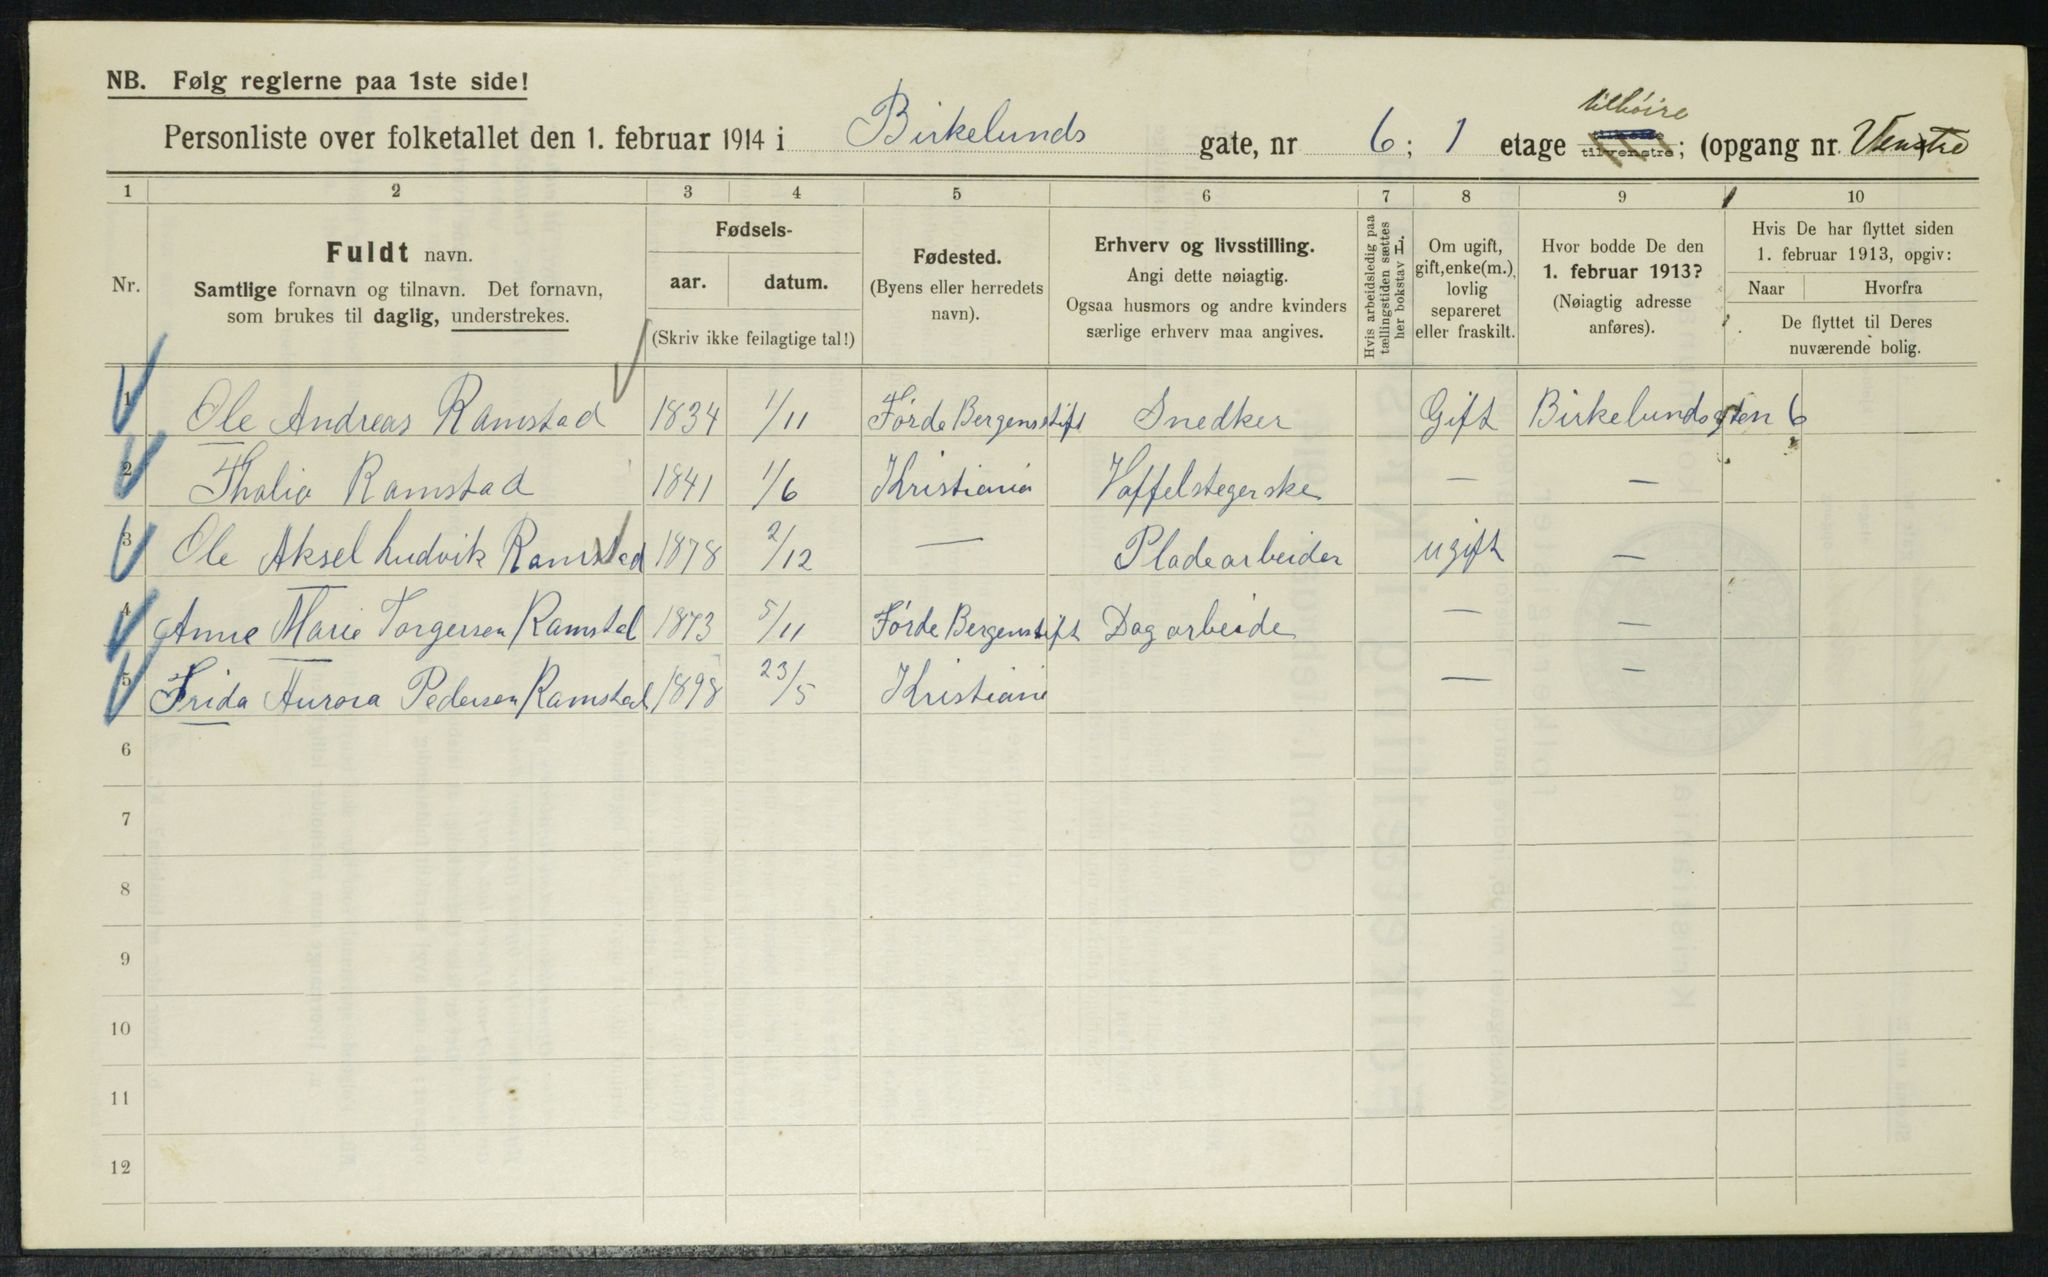 NB. Følg reglerne paa 1ste side!
tilhöire
Personliste over folketallet den 1. februar 1914 i Birkelunds gate, nr 6; 1 etage tilvenstre; (opgang nr. Venstre
1 2 3 4 5 6 7 8 9 10
Nr.
Fuldt navn.
Samtlige fornavn og tilnavn. Det fornavn,
som brukes til daglig, understrekes.
Fødsels-
aar. datum.
(Skriv ikke feilagtige tal!)
Fødested.
(Byens eller herredets
navn).
Erhverv og livsstilling.
Angi dette nøiagtig.
Ogsaa husmors og andre kvinders
særlige erhverv maa angives.
Hvis arbeidsledig paa
tællingstiden sættes
her bokstav L.
Om ugift,
gift, enke(m.),
lovlig
separeret
eller fraskilt.
Hvor bodde De den
1. februar 1913?
(Nøiagtig adresse
anføres).
Hvis De har flyttet siden
1. februar 1913, opgiv:
Naar Hvorfra
De flyttet til Deres
nuværende bolig.
1 Ole Andreas Ramstad 1834 1/11 Förde Bergensstift Snedker Gift Birkelundsgten 6
2 Thalia Ramstad 1841 1/6 Kristiania Vaffelstegerske — —
3 Ole Aksel Ludvik Ramstad 1878 2/12 — Pladearbeider ugift —
4 Anne Marie Torgersen Ramstad 1873 5/11 Förde Bergenstift Dagarbeide — —
5 Frida Aurora Pedersen Ramstad 1898 23/5 Kristiania — —
6
7
8
9
10
11
12